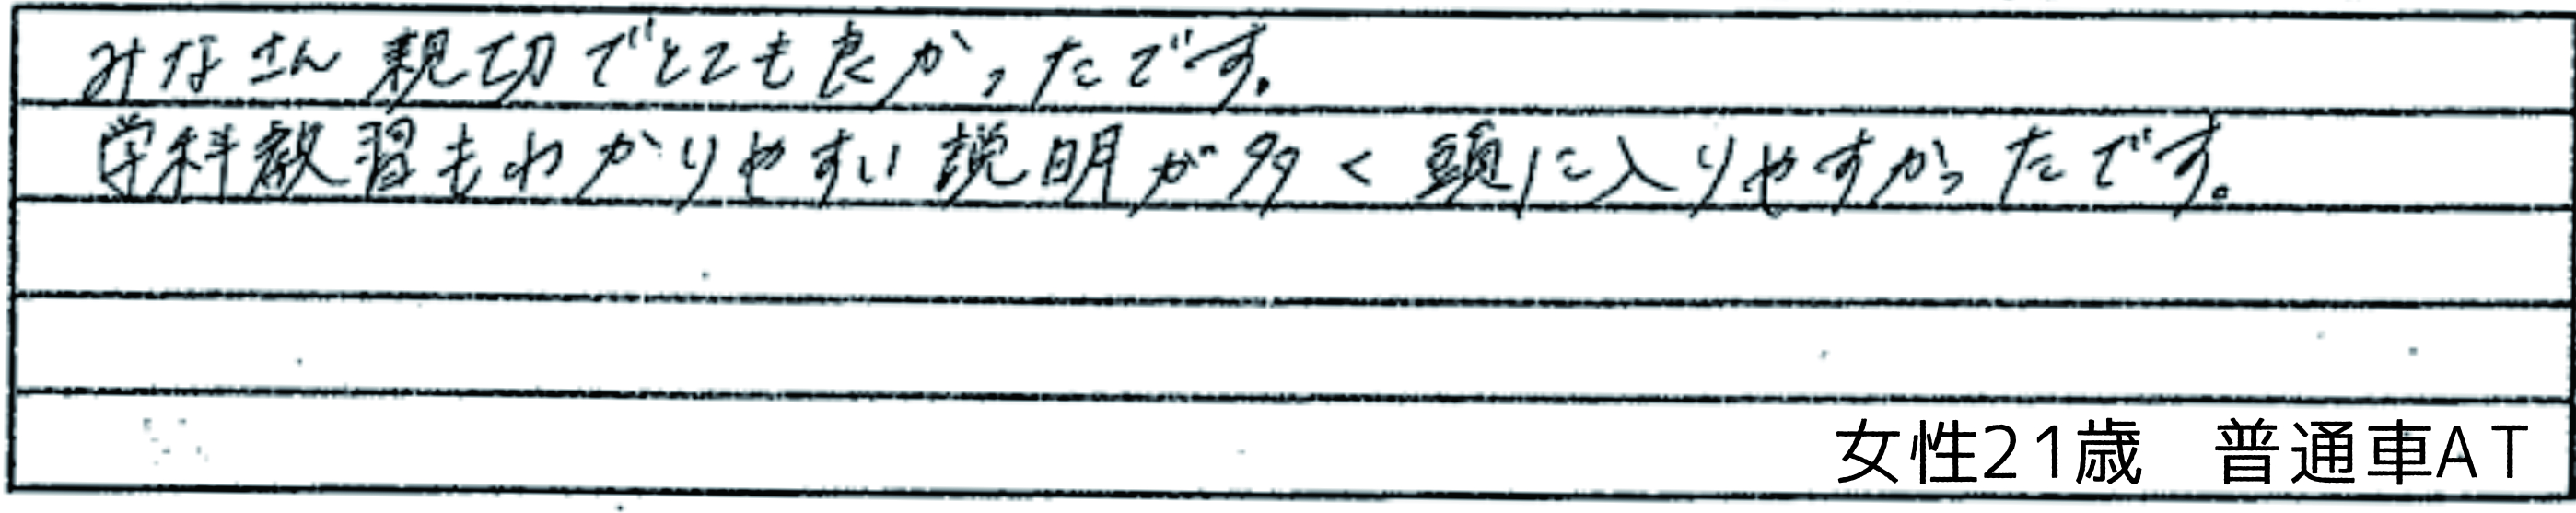 みなさん親切でとても良かったです。
学科教習もわかりやすい説明が多く頭に入りやすかったです。
女性21歳　普通車AT